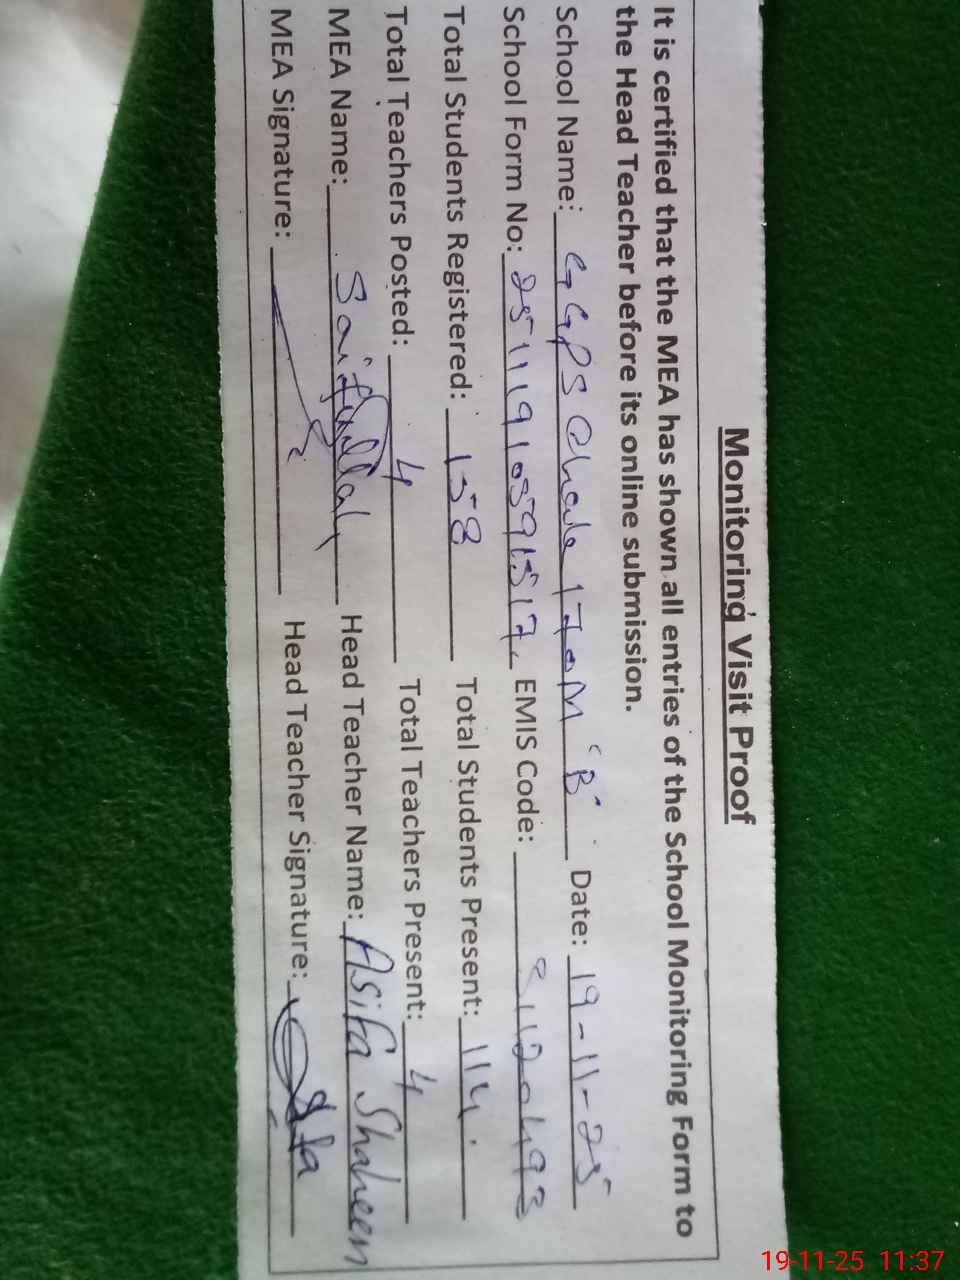 Monitoring Visit Proof
It is certified that the MEA has shown all entries of the School Monitoring Form to
the Head Teacher before its online submission.
School Name: GGPS Chak 170M "B" Date: 19-11-25
School Form No: 25111910591517 EMIS Code: 31120493
Total Students Registered: 158 Total Students Present: 114
Total Teachers Posted: 4 Total Teachers Present: 4
MEA Name: Saifullah Head Teacher Name: Asifa Shaheen
MEA Signature: Head Teacher Signature:
19-11-25 11:37